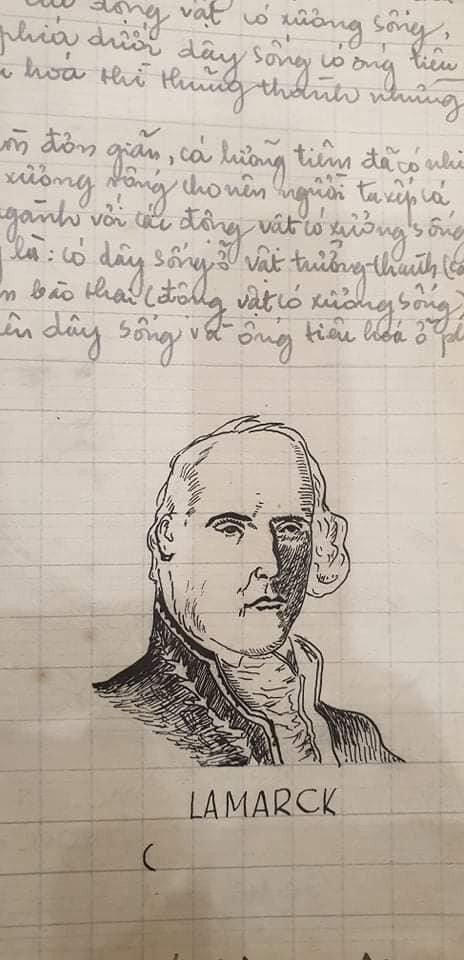 của động vật có xương sống,
phía dưới dây sống có ống tiêu
hoá thì thủng thành những
đơn giản, cá lưỡng tiêm đã có nhi
xương sống cho nên người ta xếp cá
ngành với các động vật có xương sống
là: có dây sống ở vật trưởng-thành (cá
bào thai (động vật có xương sống)
ên dây sống và ống tiêu hoá ở ph
LAMARCK
(